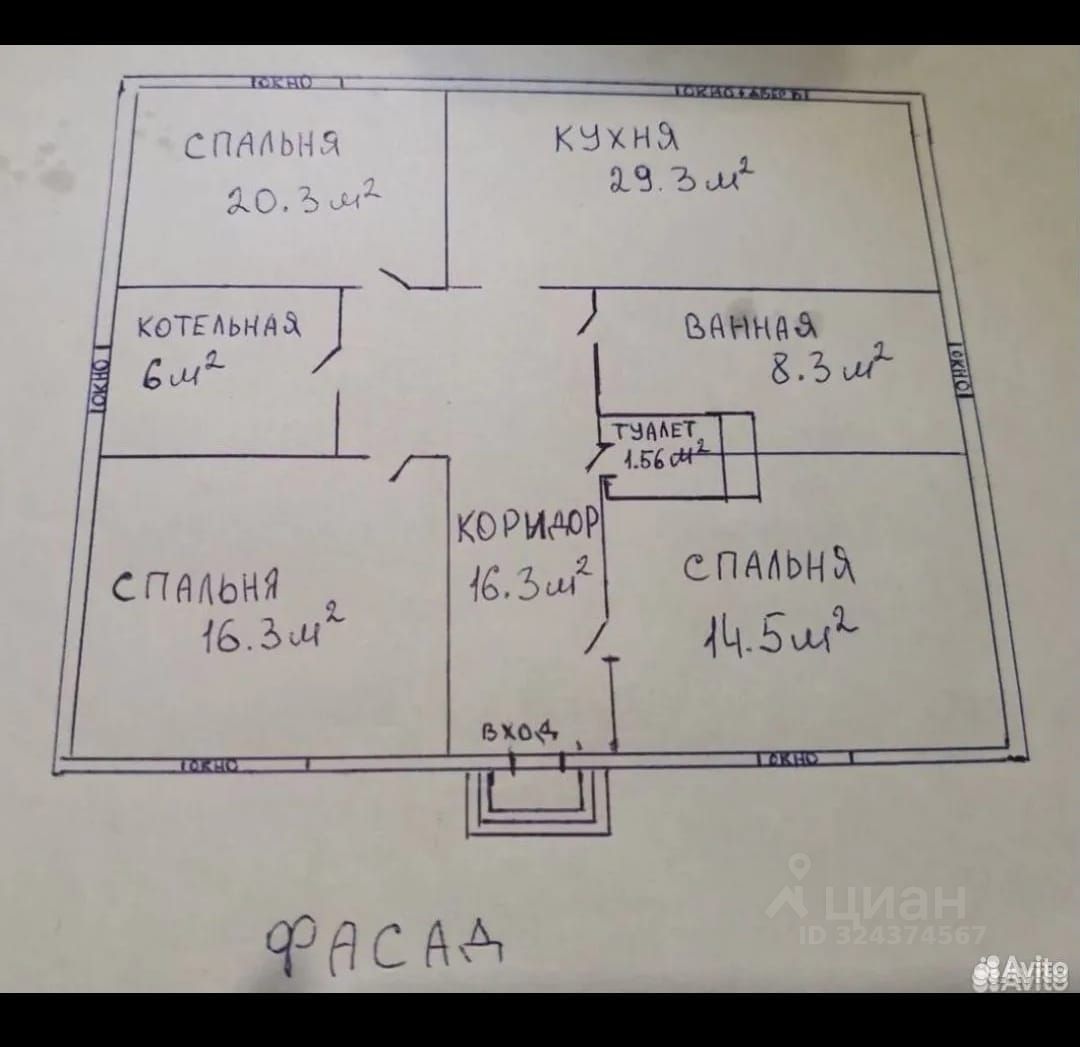 ОКНО
ОКНО+ДВЕРЬ
СПАЛЬНЯ
20.3 м²
КУХНЯ
29.3 м²
КОТЕЛЬНАЯ
6 м²
ОКНО
ВАННАЯ
8.3 м²
ОКНО
ТУАЛЕТ
1.56 м²
КОРИДОР
16.3 м²
СПАЛЬНЯ
16.3 м²
СПАЛЬНЯ
14.5 м²
ВХОД
ОКНО
ОКНО
ФАСАД
циан
ID 324374567
Avito
Avito